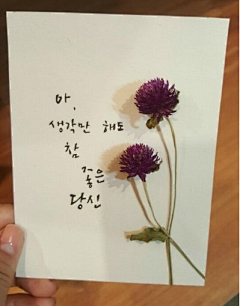 아,
생각만 해도
참
좋은
당신